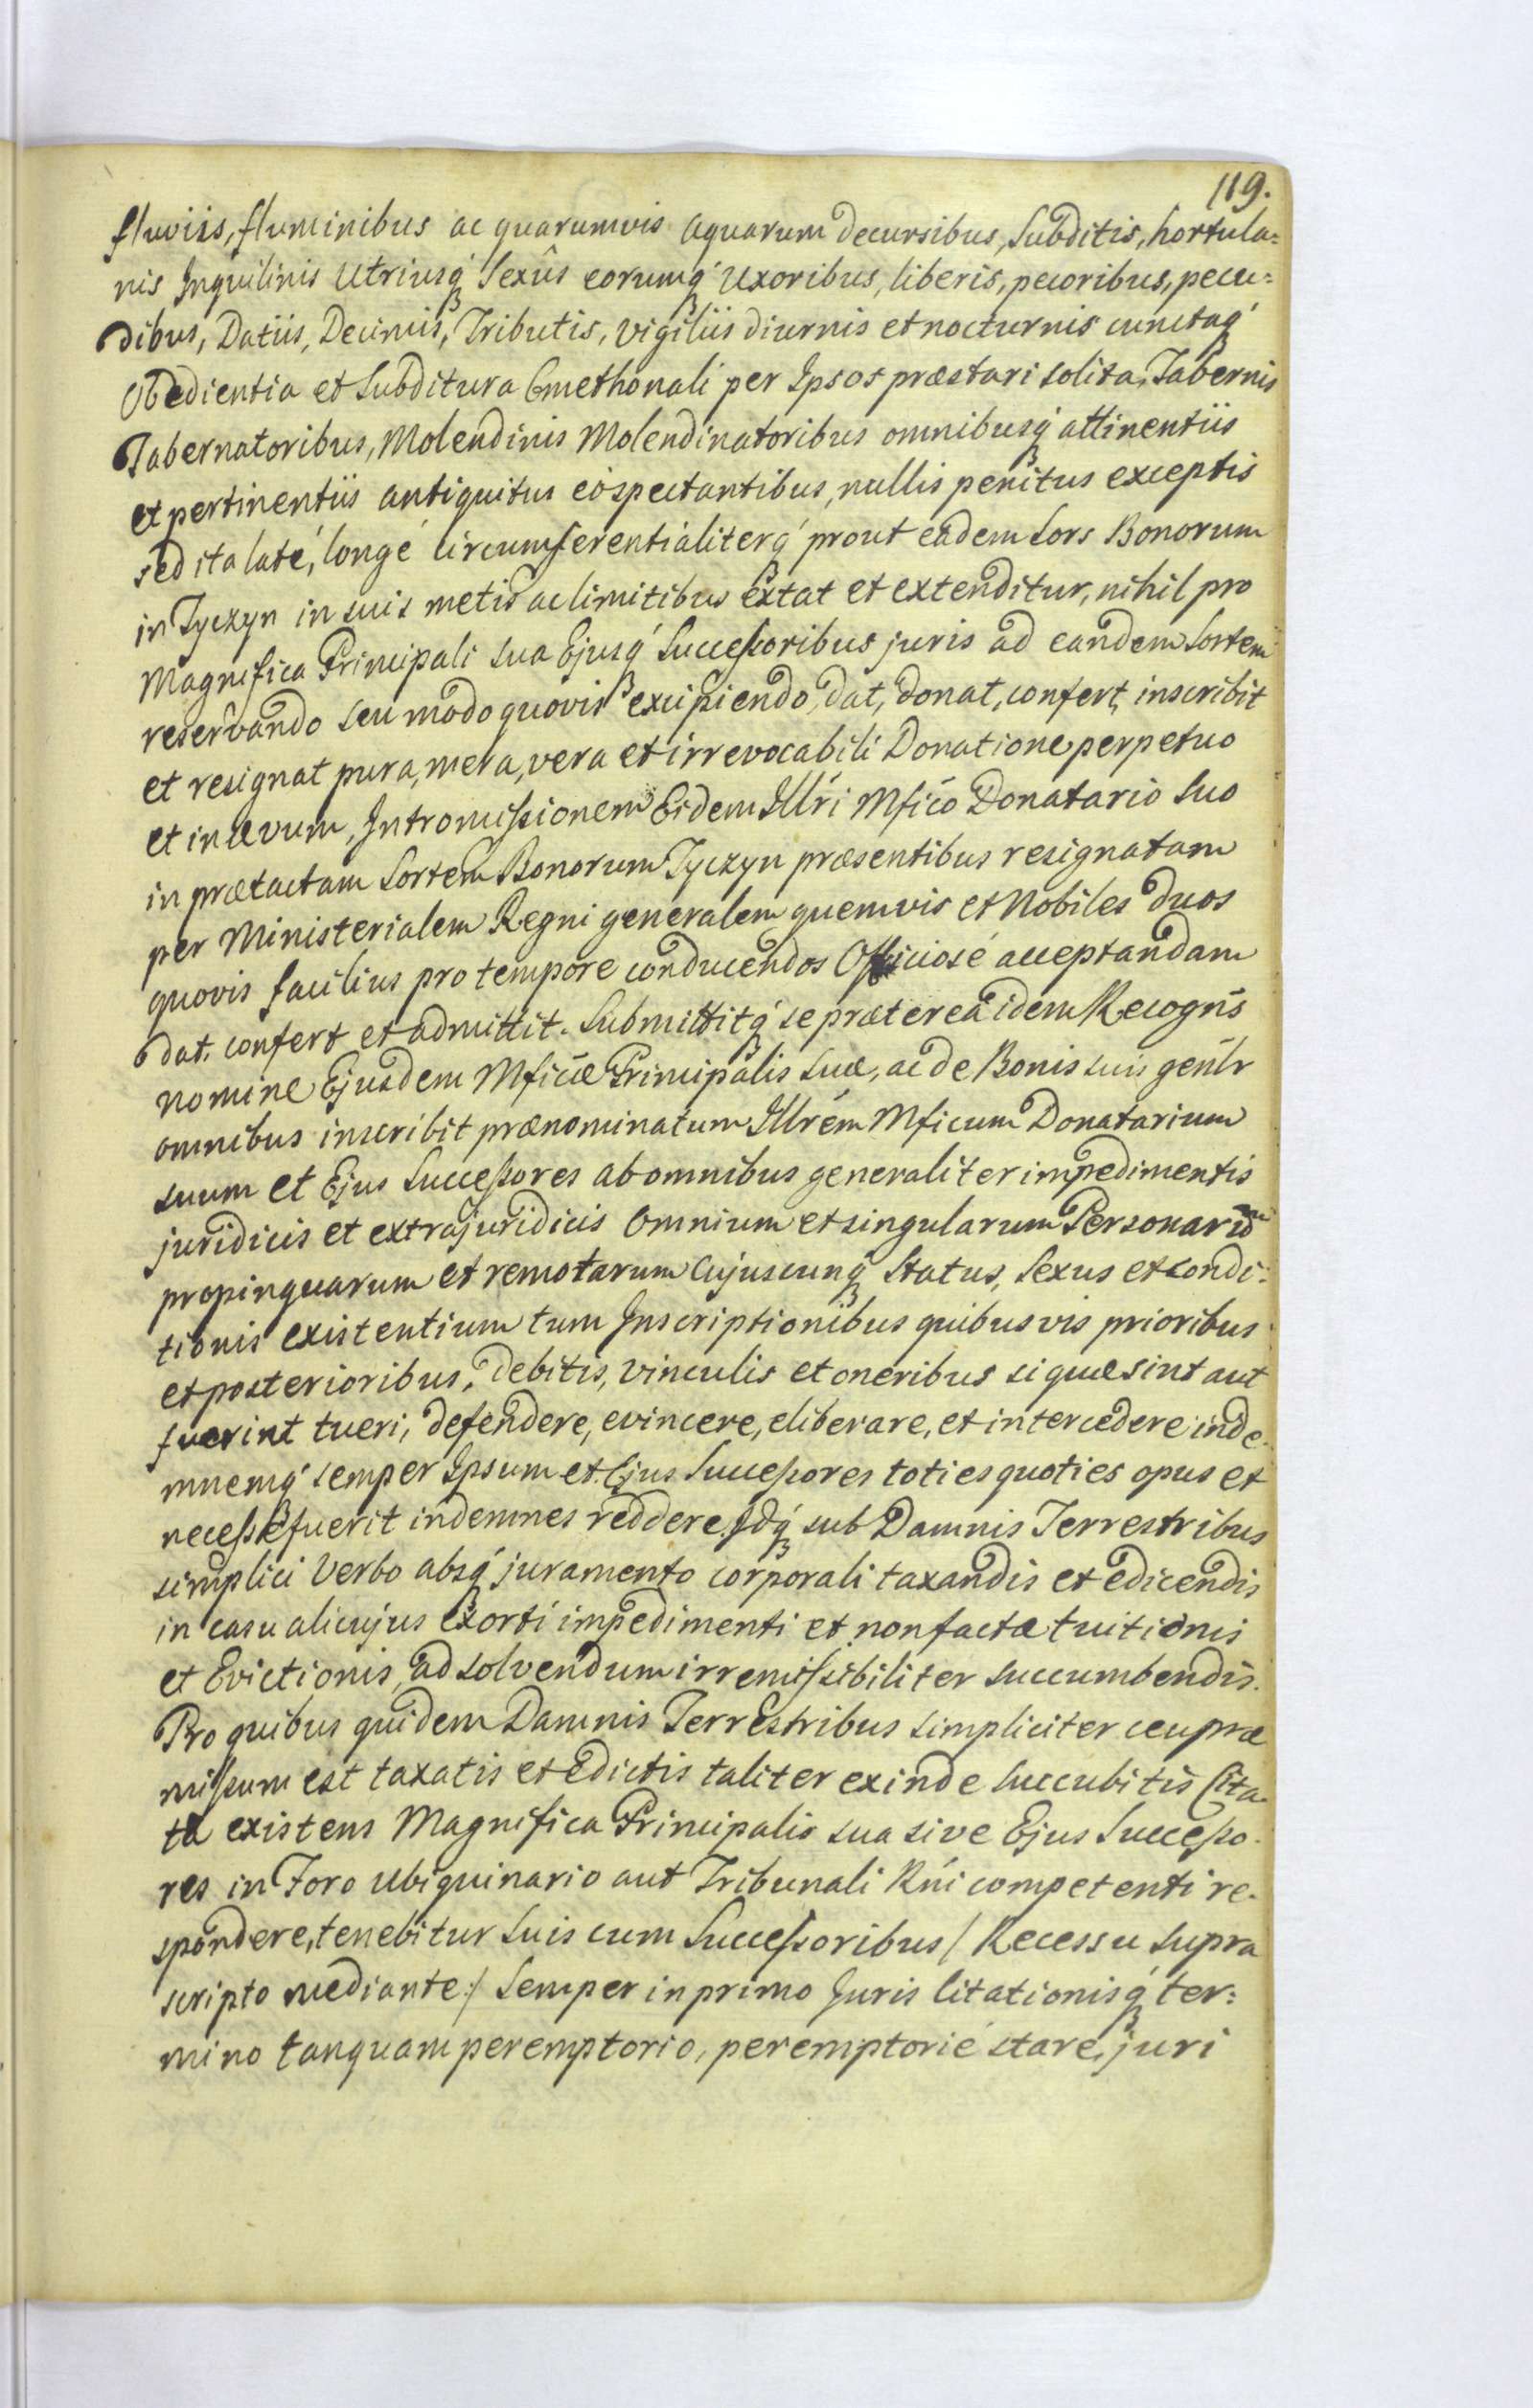 119.
fluviis, fluminibus ac quarumvis aquarum decursibus, Subditis, hortula=
nis Inquilinis Utriusq́ Sexûs eorumq́ Uxoribus, liberis, pecoribus, pecu=
dibus, Datiis, Decimis, Tributis, vigiliis diurnis et nocturnis cunctaq́
Obedientia et Subditura Cmethonali per Ipsos præstari solita, Tabernis
Tabernatoribus, Molendinis Molendinatoribus omnibusq́ attinentiis
et pertinentiis antiquitus eò spectantibus, nullis penitus exceptis
sed ita laté, longé circumferentialiterq́ prout eadem Sors Bonorum
in Tyczyn in suis metis ac limitibus extat et extenditur, nihil pro
Magnifica Principali sua Ejusq́ Successoribus juris ad eandem Sortem
reservando seu modo quovis excipiendo, dat, donat, confert, inscribit
et resignat pura, mera, vera et irrevocabili Donatione perpetuo
et in ævum, Intromissionem Eidem Illri Mfico Donatario Suo
in prætactam Sortem Bonorum Tyczyn præsentibus resignatam
per Ministerialem Regni generalem quemvis et Nobiles duos
quovis facilius pro tempore conducendos Officiosé acceptandam
dat, confert et admittit. Submittitq́ se præterea idem Recogns
nomine Ejusdem Mficæ Principalis Suæ, ac de Bonis suis genlr
omnibus inscribit prænominatum Illrem Mficum Donatarium
suum et Ejus Successores ab omnibus generaliter impedimentis
juridicis et extrajuridicis omnium et singularum Personarum
propinquarum et remotarum cujuscunq́ Status, Sexus et condi=
tionis existentium tum Inscriptionibus quibusvis prioribus
et posterioribus, debitis, vinculis et oneribus si quæ sint aut
fuerint tueri, defendere, evincere, eliberare, et intercedere inde-
mnemq́ semper Ipsum et Ejus Successores toties quoties opus et
necesse fuerit indemnes reddere. Idq́ sub Damnis Terrestribus
simplici Verbo absq́ juramento corporali taxandis et edicendis
in casu alicujus exorti impedimenti et non factæ tuitionis
et Evictionis, ad solvendum irremissibiliter succumbendis.
Pro quibus quidem Damnis Terrestribus simpliciter ceu præ
missum est taxatis et edictis taliter exinde succubitis Cita-
ta existens Magnifica Principalis sua sive Ejus Successo-
res in Foro Ubiquinario aut Tribunali Rni competenti re-
spondere, tenebitur Suis cum Successoribus / Recessu supra
scripto mediante / Semper in primo Juris Citationisq́ ter=
mino tanquam peremptorio, peremptorié stare, juri